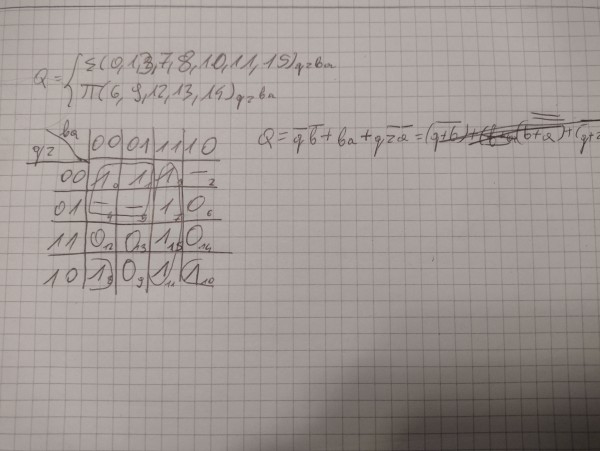 Q = { Σ(0,1,3,7,8,10,11,15)qzba
Π(6,9,12,13,14)qzba
ba
qz 00 01 11 10
00 1 0 1 1 1 3 – 2
01 – 4 – 5 1 7 0 6
11 0 12 0 13 1 15 0 14
10 1 8 0 9 1 11 1 10
Q = q̅ b̅ + ba + q z̅ a̅ =